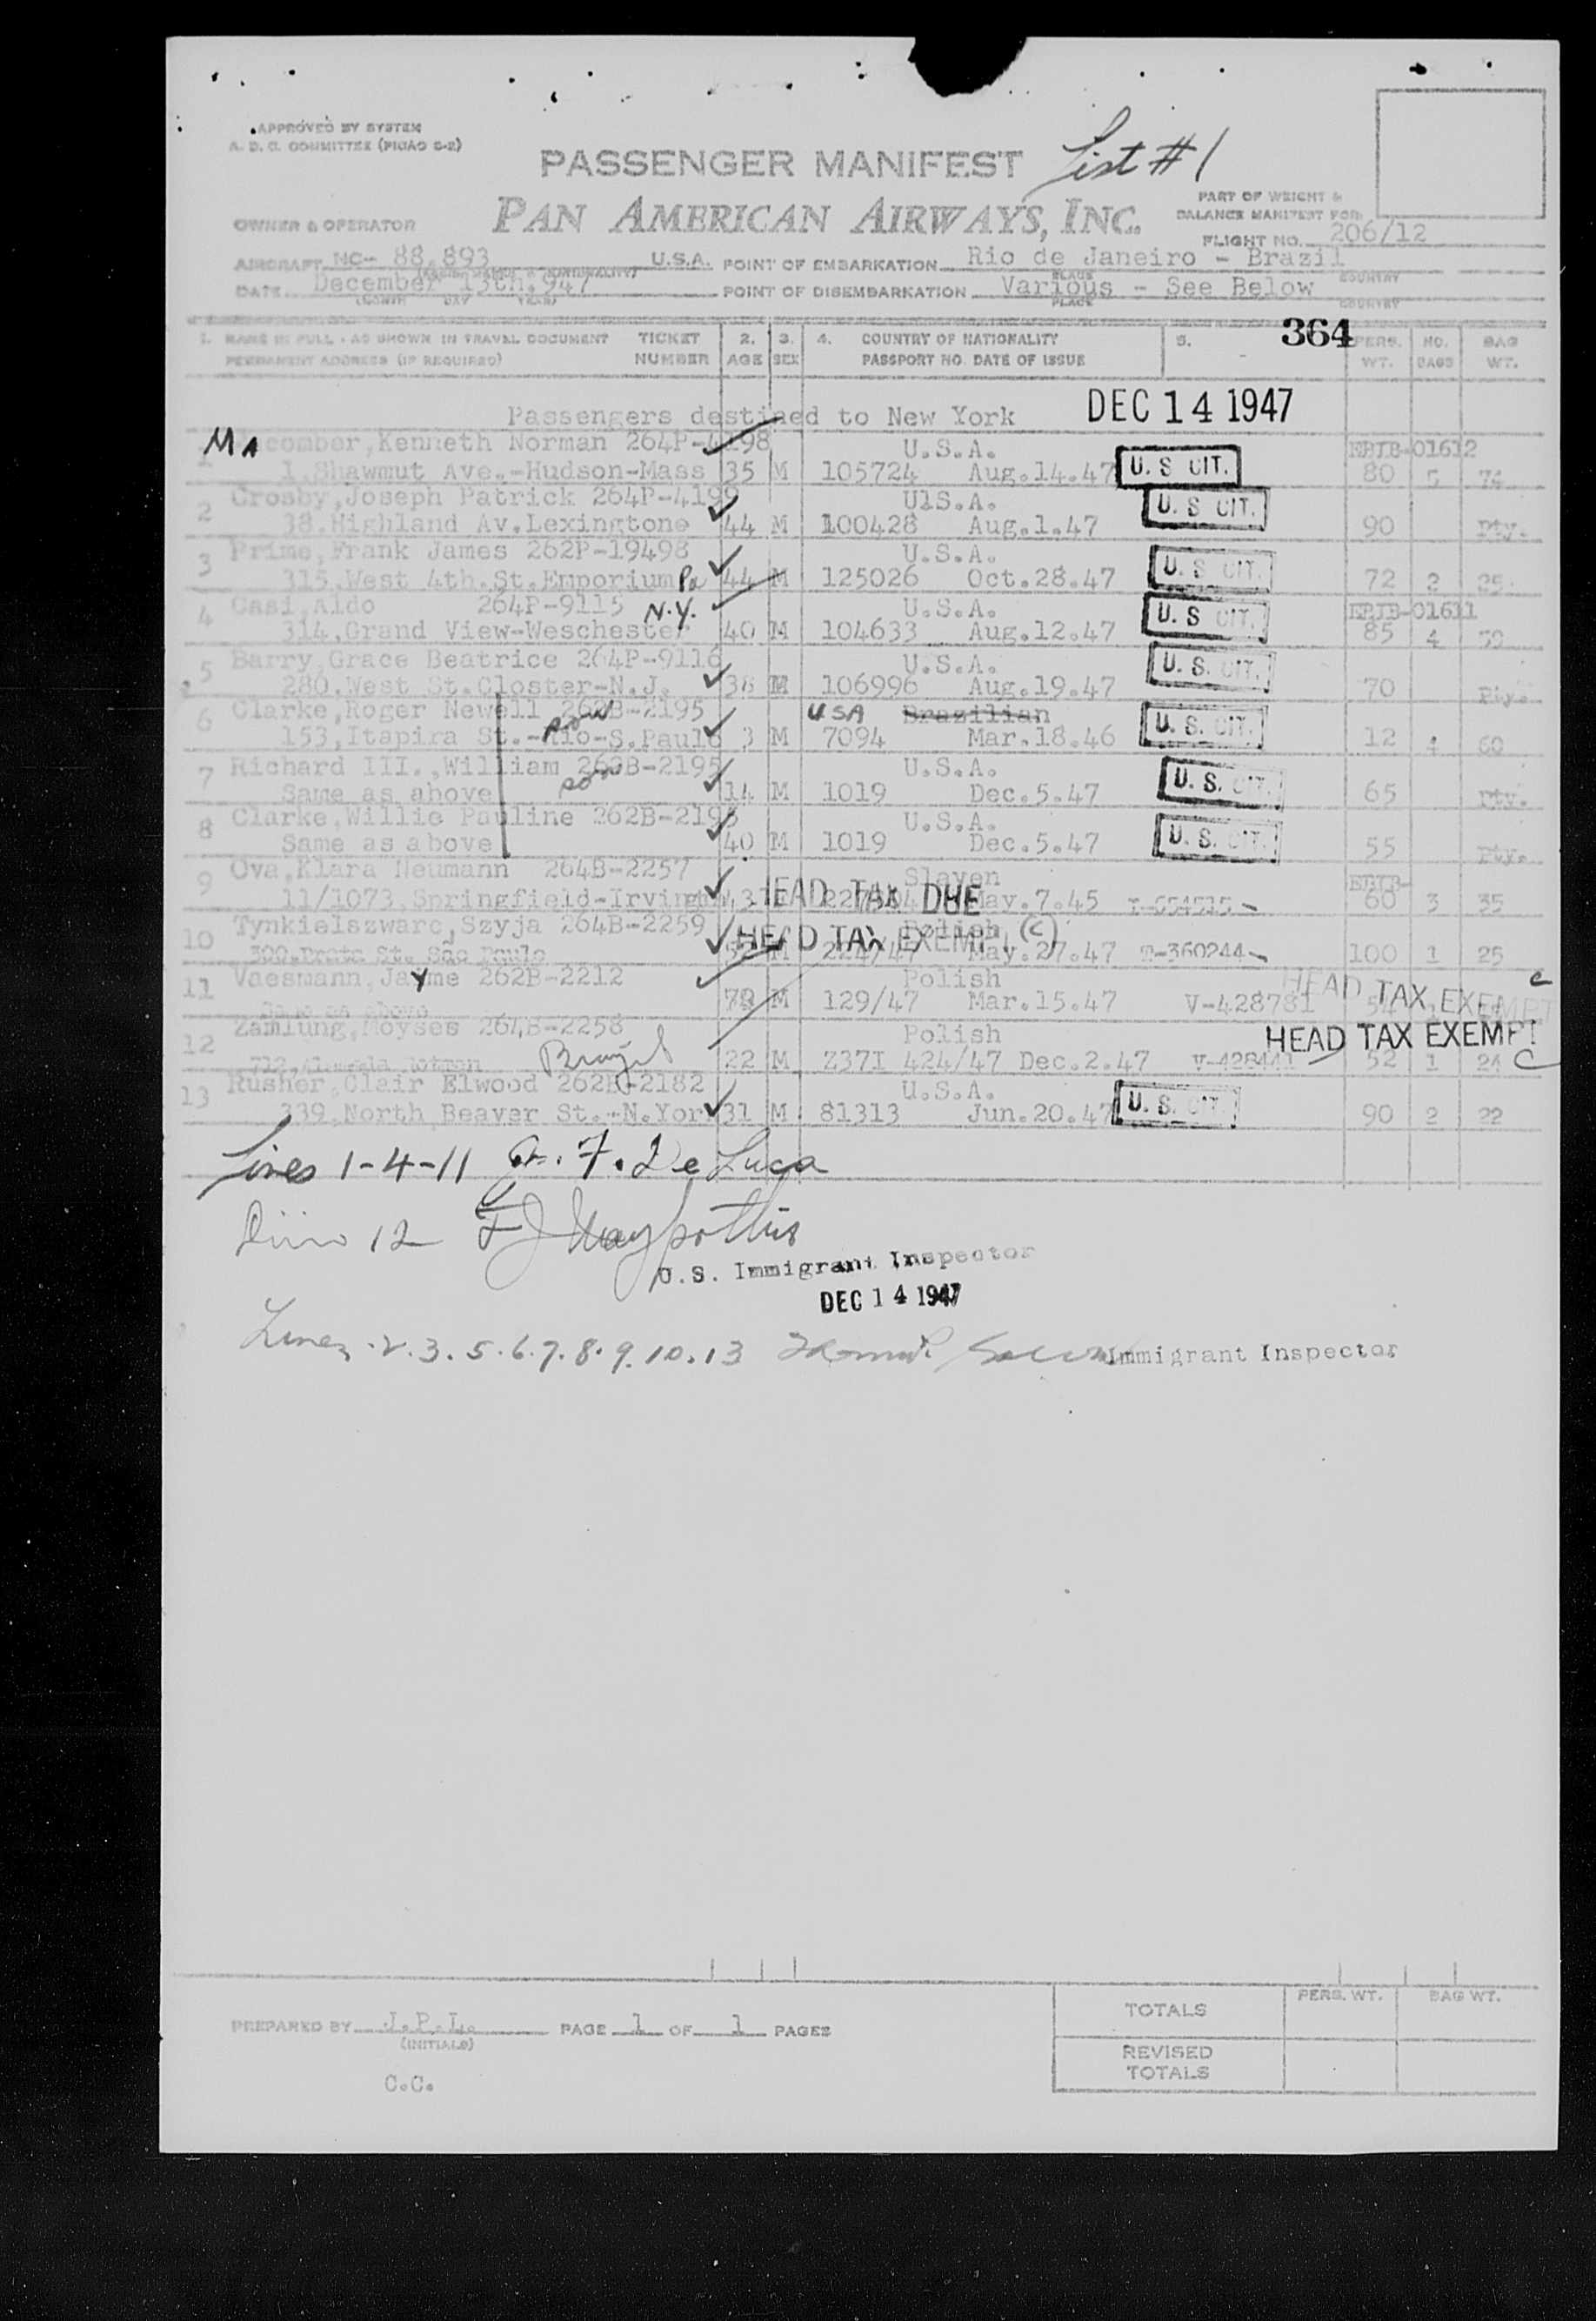 APPROVED BY SYSTEM
A. D. C. COMMITTEE (PICAO 5-2)
PASSENGER MANIFEST List #1
PART OF WEIGHT &
BALANCE MANIFEST FOR
OWNER & OPERATOR PAN AMERICAN AIRWAYS, INC.
FLIGHT NO. 206/12
AIRCRAFT NC- 88.893 U.S.A. POINT OF EMBARKATION Rio de Janeiro - Brazil
PLACE COUNTRY
DATE December 13th.947 POINT OF DISEMBARKATION Various - See Below
(MONTH DAY YEAR) PLACE COUNTRY
364
1. NAME IN FULL - AS SHOWN IN TRAVEL DOCUMENT TICKET 2. 3. 4. COUNTRY OF NATIONALITY 5. PERS. NO. BAG
PERMANENT ADDRESS (IF REQUIRED) NUMBER AGE SEX PASSPORT NO. DATE OF ISSUE WT. BAGS WT.
Passengers destined to New York DEC 14 1947
1 MAcomber,Kenneth Norman 264P-4198 U.S.A. EBIB-01612
1.Shawmut Ave.-Hudson-Mass 35 M 105724 Aug.14.47 U. S CIT. 80 5 74
2 Crosby,Joseph Patrick 264P-4199 UlS.A.
38.Highland Av.Lexingtone 44 M 100428 Aug.1.47 U. S CIT. 90 pty.
3 Prime,Frank James 262P-19498 U.S.A.
315.West 4th.St.Emporium Pa 44 M 125026 Oct.28.47 U. S CIT. 72 2 25
4 Casi,Aldo 264P-9115 N.Y. U.S.A. EBIB-01611
314,Grand View-Weschester 40 M 104633 Aug.12.47 U. S CIT. 85 4 50
5 Barry,Grace Beatrice 264P-9116 U.S.A.
280,West St.Closter-N.J. 38 M 106996 Aug.19.47 U. S. CIT. 70 pty.
6 Clarke,Roger Newell 262B-2195 USA Brazilian
153,Itapira St.-Rio-S.Paulo son 3 M 7094 Mar.18.46 U. S. CIT. 12 4 60
7 Richard III.,William 262B-2195 U.S.A.
Same as above son 14 M 1019 Dec.5.47 U. S. CIT. 65 pty.
8 Clarke,Willie Pauline 262B-2195 U.S.A.
Same as above 40 M 1019 Dec.5.47 U. S. CIT. 55 pty.
9 Ova,Klara Neumann 264B-2257 Slaven EBIB-
11/1073,Springfield-Irvington 43 HEAD TAX DUE May.7.45 60 3 35
10 Tynkielszwarc,Szyja 264B-2259 Polish (C)
São Paulo 52 M HEAD TAX EXEMPT 224/47 May.27.47 T-360244 100 1 25
11 Vaesmann,Jayme 262B-2212 Polish HEAD TAX EXEMPT C
Same as above 79 M 129/47 Mar.15.47 V-428781 54
12 Zamlung,Moyses 264B-2258 Polish HEAD TAX EXEMPT
Brazil 22 M Z37I 424/47 Dec.2.47 V-428441 52 1 24 C
13 Rusher,Clair Elwood 262B-2182 U.S.A.
339,North Beaver St.-N.York 31 M 81313 Jun.20.47 U. S. CIT. 90 2 22
Lines 1-4-11 F. De Luca
12
U.S. Immigrant Inspector
DEC 14 1947
Lines 2.3.5.6.7.8.9.10.13 Immigrant Inspector
PERS. WT. BAG WT.
TOTALS
PREPARED BY J.P.L. PAGE 1 OF 1 PAGES
(INITIALS)
REVISED
TOTALS
C.C.